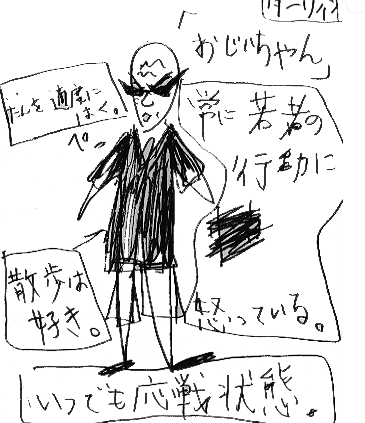 「おじいちゃん」
たんを適度に
はく。
ペっ
常に若者の
行動に
怒っている。
散歩は
好き。
いつでも応戦状態。